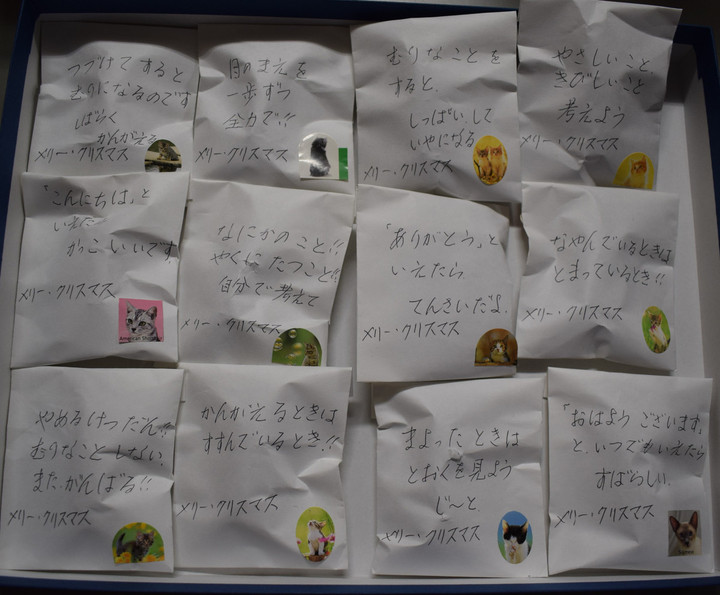 つづけてすると
むりになるのです
しばらく
かんがえる
メリー・クリスマス
目のまえを
一歩ずつ
全力で!!
メリー・クリスマス
むりなことを
すると、
しっぱいして
いやになる
メリー・クリスマス
やさしいこと、
きびしいこと
考えよう
メリー・クリスマス
「こんにちは」と
いえたら
かっこいいです
メリー・クリスマス
なにかのこと!!
やくにたつこと!!
自分で考えて
メリー・クリスマス
「ありがとう」と
いえたら
てんさいだよ.
メリー・クリスマス
なやんでいるときは
とまっているとき!!
メリー・クリスマス
やめるけつだん!!
むりなことしない,
また、がんばる!!
メリー・クリスマス
かんがえるときは
すすんでいるとき!!
メリー・クリスマス
まよったときは
とおくを見よう
じ〜と.
メリー・クリスマス
「おはようございます」
と、いつでもいえたら
すばらしい.
メリー・クリスマス